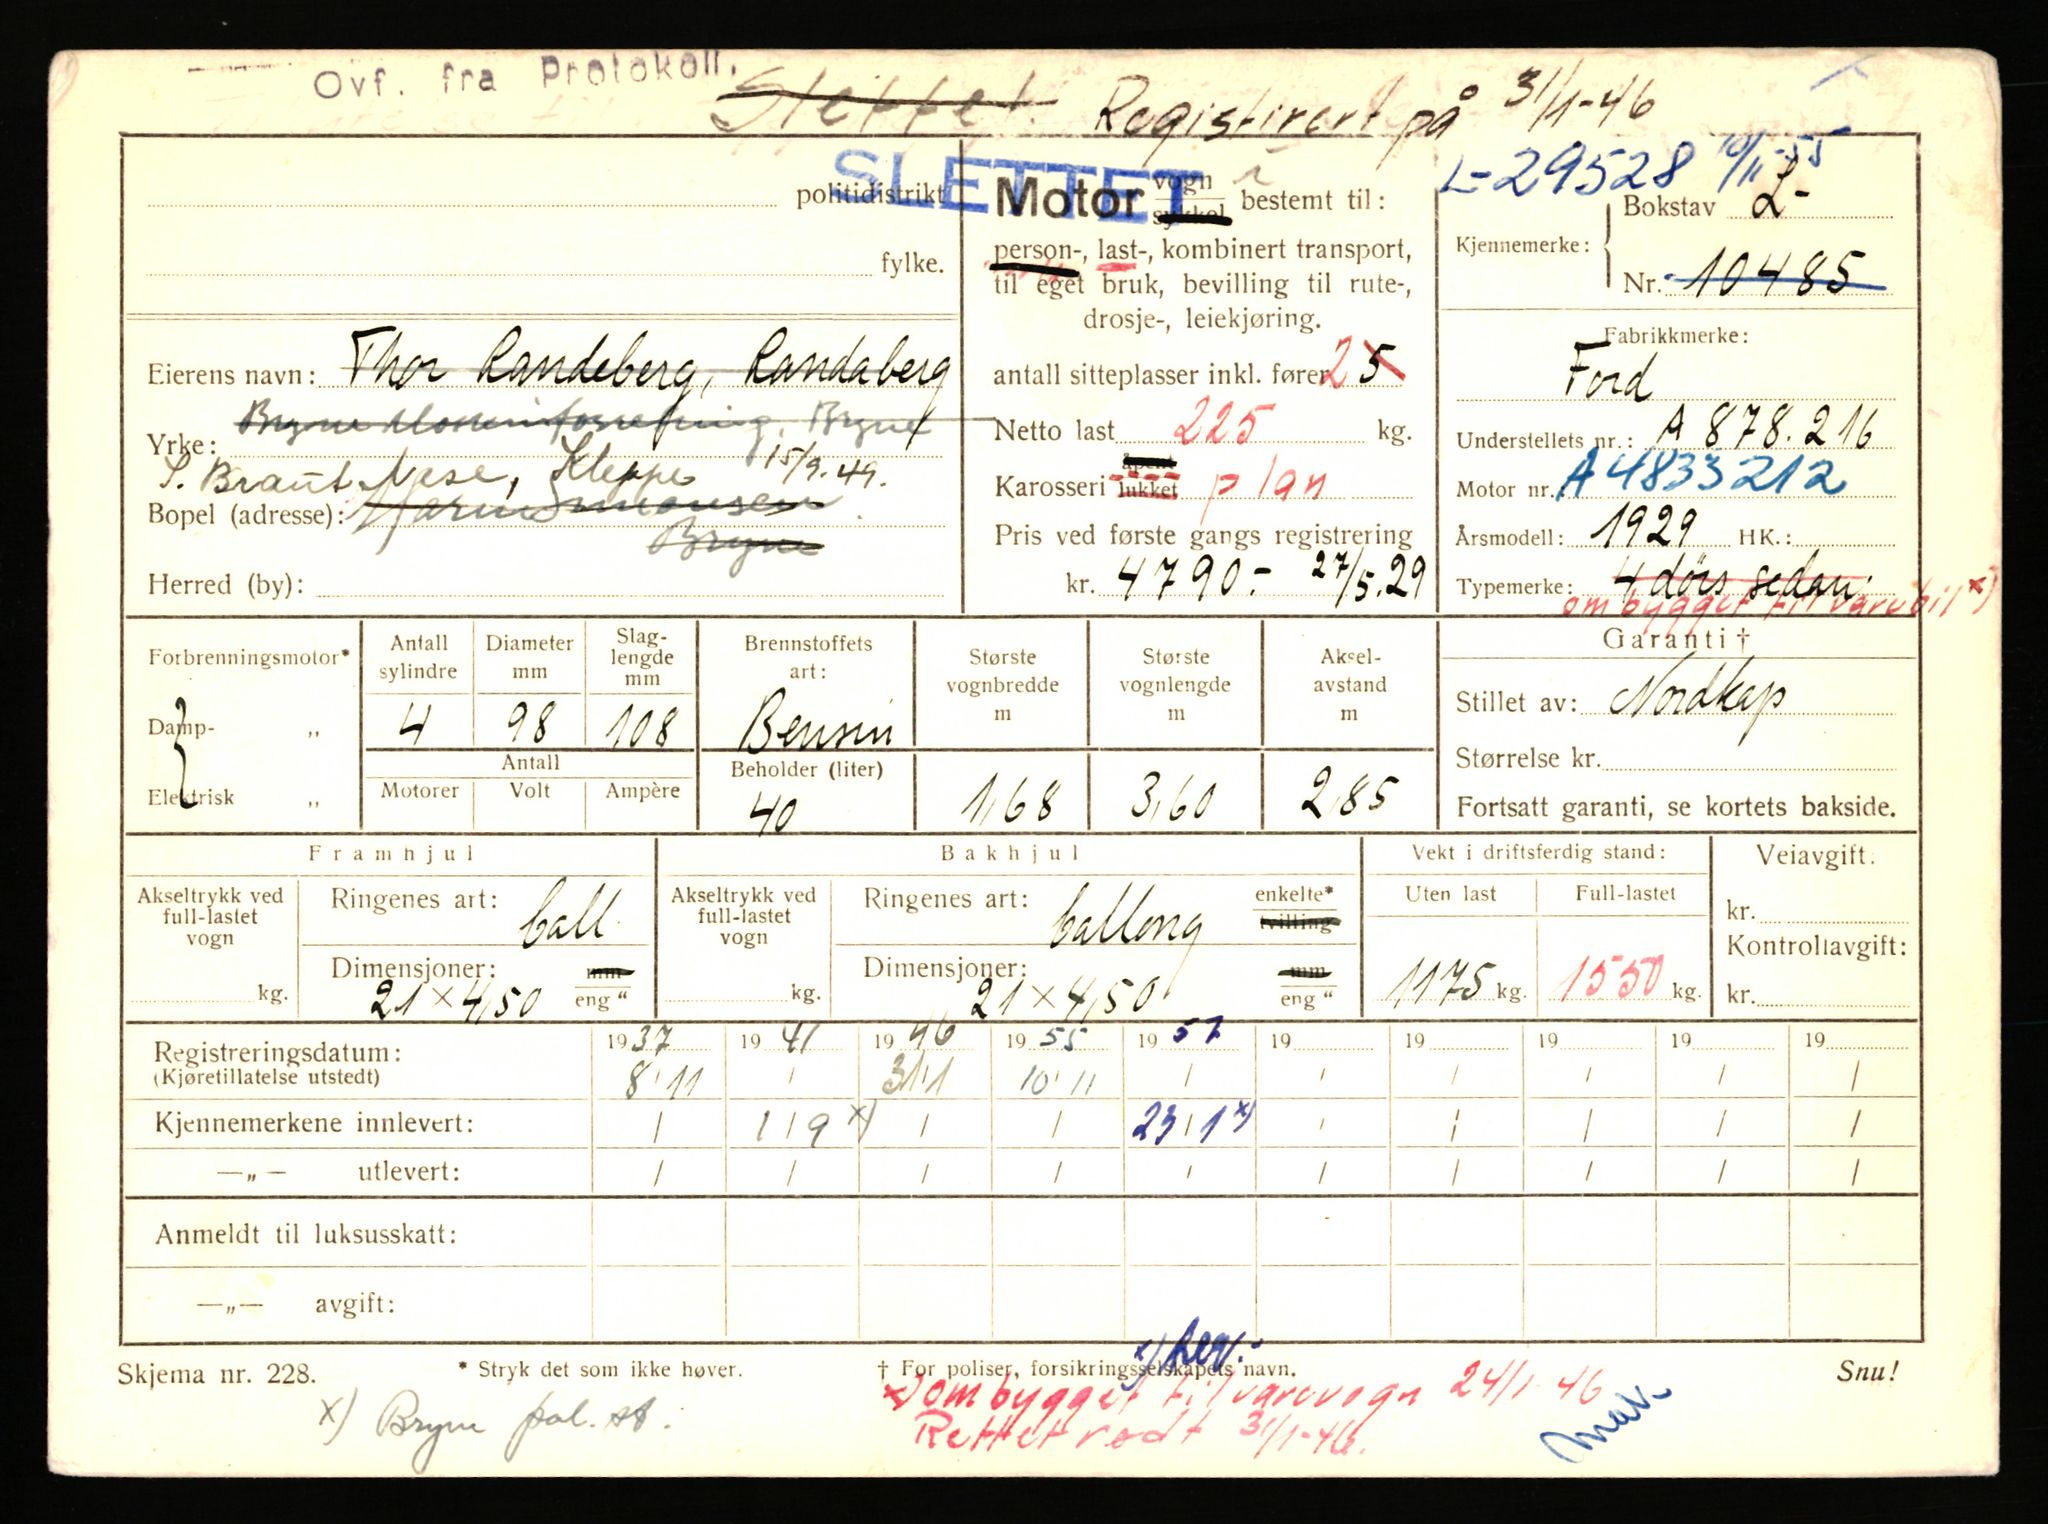 Ovf. fra Protokoll.
Slettet. Registirert på 31/1-46
SLETTET
L-29528 10/11-55
politidistrikt
fylke.
Motor vogn sykkel bestemt til:
person-, last-, kombinert transport,
til eget bruk, bevilling til rute-,
drosje-, leiekjøring.
Kjennemerke: Bokstav L-
Nr. 10485
Eierens navn: Thor Randeberg, Randaberg
Bryne Bryne
Yrke:
S. Braut Nese, Kleppe 15/9.49.
Bopel (adresse):
Bryne
Herred (by):
antall sitteplasser inkl. fører 2 5
Netto last 225 kg.
Karosseri åpent lukket plan
Pris ved første gangs registrering
kr. 4790.- 27/5.29
Fabrikkmerke:
Ford
Understellets nr.: A 878.216
Motor nr. A4833212
Årsmodell: 1929 HK.:
Typemerke: 4 dørs sedan.
ombygget til varebil x)
Forbrenningsmotor*
Damp- „
Elektrisk „
Antall sylindre
Diameter mm
Slag-lengde mm
4 98 108
Antall
Motorer Volt Ampère
Brennstoffets art:
Bensin
Beholder (liter)
40
Største vognbredde m
1,68
Største vognlengde m
3,60
Aksel-avstand m
2,85
Garanti †
Stillet av: Nordkap
Størrelse kr.
Fortsatt garanti, se kortets bakside.
Framhjul
Akseltrykk ved full-lastet vogn
kg.
Ringenes art: ball.
Dimensjoner: mm
21 × 4,50 eng "
Bakhjul
Akseltrykk ved full-lastet vogn
kg.
Ringenes art: ballong enkelte* tvilling
Dimensjoner: mm
21 × 4,50 eng "
Vekt i driftsferdig stand:
Uten last Full-lastet
1175 kg. 1550 kg.
Veiavgift.
kr.
Kontrollavgift:
kr.
Registreringsdatum: 1937 1941 1946 1955 1957 19 19 19 19 19
(Kjøretillatelse utstedt) 8/11 / 31/1 10/11 / / / / / /
Kjennemerkene innlevert: / 1/9 x) / / 23/1 x) / / / / /
—„— utlevert: / / / / / / / / / /
Anmeldt til luksusskatt:
—„— avgift:
Skjema nr. 228.
* Stryk det som ikke høver.
† For poliser, forsikringsselskapets navn.
Snu!
x) ombygget til varevogn 24/1-46
Rettet rødt 31/1-46.
x) Bryne pol. st.